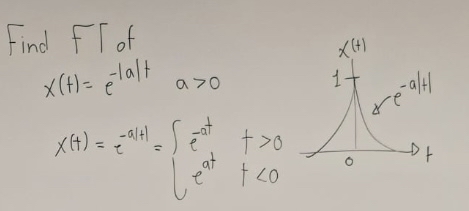 Find FT of
x(t) = e^{-|a|t} a>0
x(t) = e^{-a|t|} = { e^{-at} t>0
e^{at} t<0
x(t)
1
e^{-a|t|}
0
t